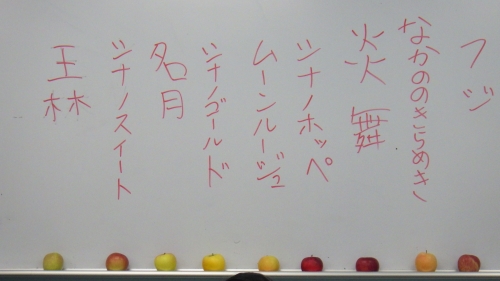 フジ
なかののきらめき
炎舞
シナノホッペ
ムーンルージュ
シナノゴールド
名月
シナノスイート
王林